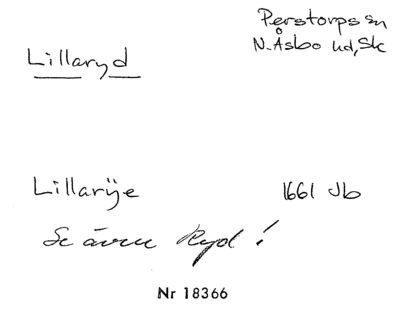 Perstorps sn
Lillaryd
N. Åsbo hd, Sk
Lillarÿe 1661 Jb
Se även Ryd!
Nr 18366